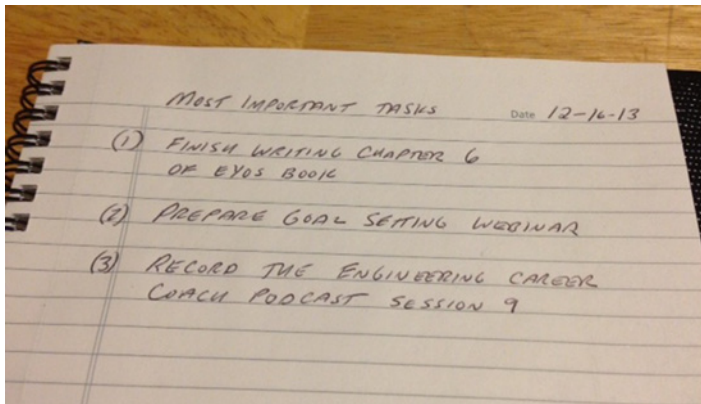 MOST IMPORTANT TASKS Date 12-16-13
(1) FINISH WRITING CHAPTER 6
OF EYOS BOOK
(2) PREPARE GOAL SETTING WEBINAR
(3) RECORD THE ENGINEERING CAREER
COACH PODCAST SESSION 9